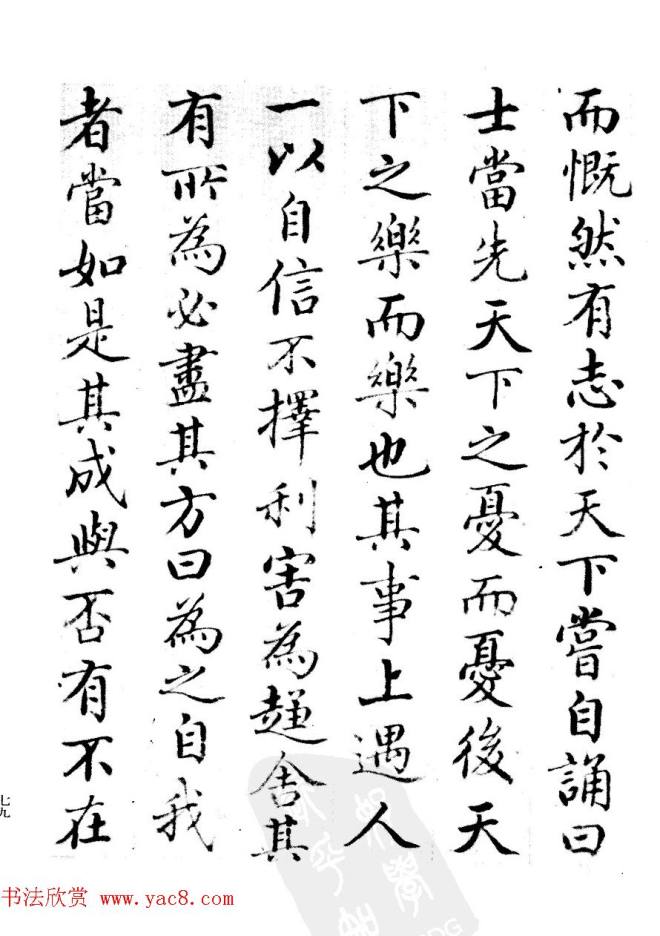 而慨然有志於天下嘗自誦曰
士當先天下之憂而憂後天
下之樂而樂也其事上遇人
一以自信不擇利害為趨舍其
有所為必盡其方曰為之自我
者當如是其成與否有不在
七九
书法欣赏 www.yac8.com